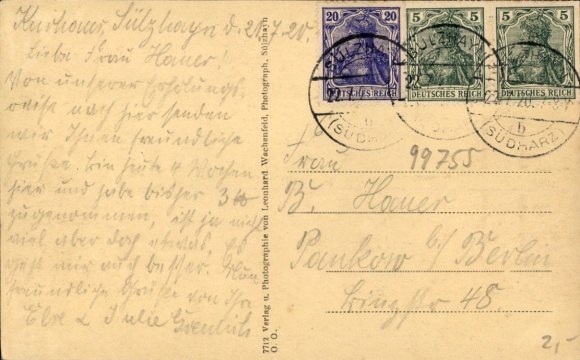 Kurhaus, Sülzhayn d. 21.7.20.
Liebe Frau Hauer!
Von unserer Erholungs
reise nach hier senden
wir Ihnen freundliche
Grüße. Bin heute 4 Wochen
hier und habe bisher 3 ℔
zugenommen, ist ja nicht
viel aber doch etwas. Es
geht mir auch besser. Nun
freundliche Grüße von Ihr.
Else & Julie
7712 Verlag u. Photographie von Leonhard Wachenfeld, Photograph, Sülzhayn
O. O.
20
5
5
DEUTSCHES REICH
DEUTSCHES REICH
DEUTSCHES REICH
SÜLZHAYN
(SÜDHARZ)
SÜLZHAYN
b
(SÜDHARZ)
99755
Frau
B. Hauer
Pankow b/ Berlin
48.
2,-